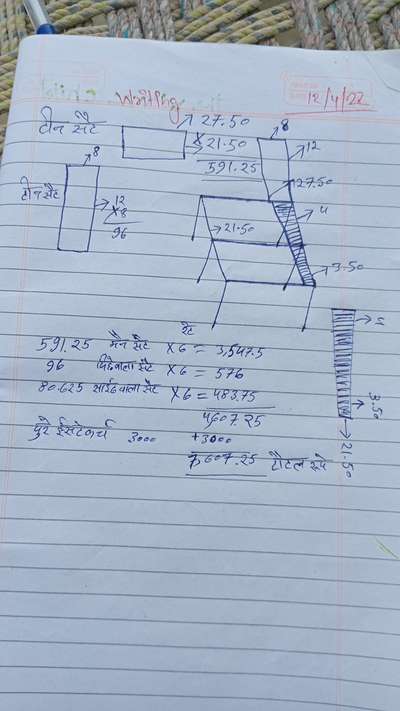 Writing
12/4/22
टीन सैट
27.50
X 21.50
591.25
8
12
27.50
4
21.50
3.50
टीन सैट
8
12
X 8
96
रेट
591.25 मैन सैट X 6 = 3,547.5
96 सैट X 6 = 576
80.625 साईडवाला सैट X 6 = 483.75
4607.25
3000 +3000
7,607.25 टोटल रूपे
3.50
21.50